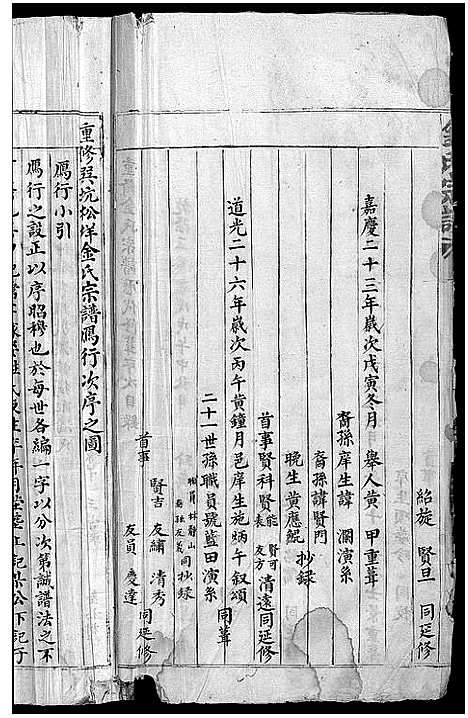 紹旋 賢旦 同延修
嘉慶二十三年歲次戊寅冬月 舉人黄 甲重葺
裔孫庠生諱 瀾演系
裔孫諱賢門 抄錄
晚生黄應鯤
道光二十六年歲次丙午黄鐘月邑庠生施炳午叙頌
二十一世孫職員號藍田演系 同葺
首事賢科賢能 賢可 友方 清遠同延修
職員林靜山
同抄錄
首事 賢吉 友繡 清秀 同延修
友員 慶達
重修珏坑松洋金氏宗譜鴈行次序之圖
鴈行小引
鴈行之設正以序昭穆也於每世各編一字以分次第誠譜法之不